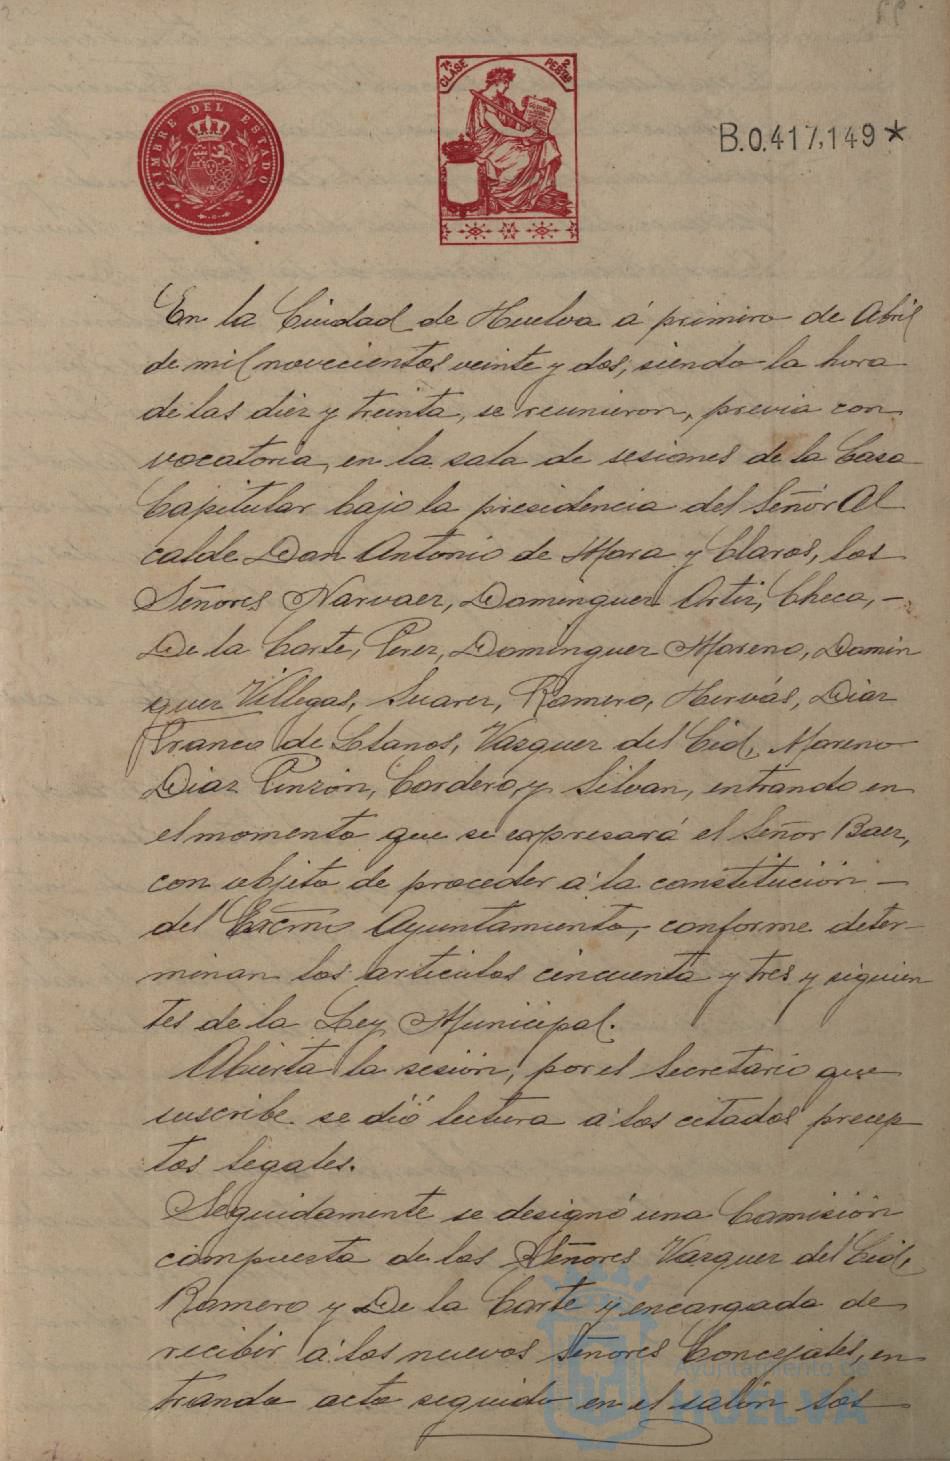 TIMBRE DEL ESTADO
7ª CLASE 2 PESTAS
B.0.417,149*
En la Ciudad de Huelva á primero de Abril
de mil novecientos veinte y dos, siendo la hora
de las diez y treinta, se reunieron, previa con
vocatoria, en la sala de sesiones de la Casa
Capitular bajo la presidencia del Señor Al
calde Don Antonio de Mora y Claros, los
Señores Narvaez, Dominguez Ortiz, Checa, -
De la Corte, Perez, Dominguez Moreno, Domin
guez Villegas, Suarez, Romero, Hervás, Diaz
Franco de Llanos, Vazquez del Cid, Moreno
Diaz Pinzón, Cordero y Silvan, entrando en
el momento que se expresará el Señor Baez,
con objeto de proceder a la constitución -
del Excmo Ayuntamiento, conforme deter-
minan los articulos cincuenta y tres y siguien
tes de la Ley Municipal.
Abierta la sesión, por el Secretario que
suscribe se dió lectura a los citados precep
tos legales.
Seguidamente se designó una Comisión
compuesta de los Señores Vazquez del Cid,
Romero y De la Corte y encargada de
recibir á los nuevos Señores Concejales, en
trando acto seguido en el salón los
Ayuntamiento de
HUELVA